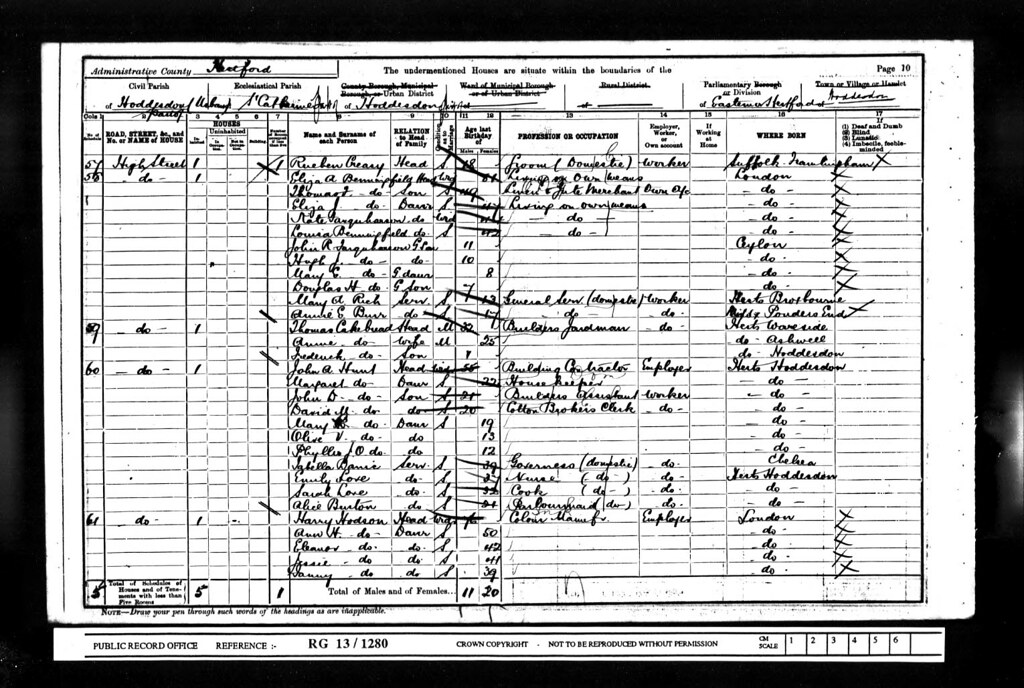 Administrative County Hertford The undermentioned Houses are situate within the boundaries of the Page 10
Civil Parish Ecclesiastical Parish County Borough, Municipal Borough, or Urban District Ward of Municipal Borough or of Urban District Rural District Parliamentary Borough or Division Town or Village or Hamlet
of Hoddesdon of St Catherine of Hoddesdon of of of Eastern Hertford of Hoddesdon
HOUSES
ROAD, STREET, &c., and No. or NAME of HOUSE Uninhabited Name and Surname of each Person RELATION to Head of Family Age last Birthday of PROFESSION OR OCCUPATION Employer, Worker, or Own account If Working at Home WHERE BORN (1) Deaf and Dumb (2) Blind (3) Lunatic (4) Imbecile, feeble-minded
Males Females
57 High Street 1 1 Reuben Geary Head S 18 Groom (Domestic) Worker Suffolk Framlingham
58 - do - 1 Eliza A Benningfield Head Wid Living on Own means London
Thomas - do - Son S 49 Linen & Jute Merchant Own a/c - do -
Eliza J do. Daur S Living on own means - do -
Kate Farquharson do Wid - do - - do -
Louisa Benningfield do. S 42 - do - - do -
John R. Farquharson G Son 11 Ceylon
Hugh - do - do. 10 - do -
Mary E. do - G daur 8 - do -
Douglas H. do G Son 7 - do -
Mary A Rich Serv. S General Serv (domestic) Worker Herts Broxbourne
Annie E Burr do S 17 do - do Ponders End
59 - do - 1 Thomas Cakebread Head M 32 Builders Yardman - do - Herts Wareside
Annie - do - Wife M 25 do - Ashwell
Frederick - do - Son 1 do - Hoddesdon
60 - do - 1 John A Hunt Head Building Contractor Employer Herts Hoddesdon
Margaret do - Daur S 22 House keeper do -
John D - do - Son S 21 Builders Assistant Worker - do -
David M. do do S 20 Cotton Brokers Clerk - do - - do -
Mary do - Daur S 19 - do -
Olive V - do - do 13 - do -
Phyllis O do. do 12 - do -
Serv. S 39 Governess (domestic) - do - Chelsea
Emily Love do - S 27 Nurse (- do -) do. Herts Hoddesdon
Sarah Love do. S 32 Cook (do -) do. - do -
Alice Burton do S 21 Parlourmaid (do) do. do -
61 - do - 1 Harry Hodson Head Wid Colour Manufr Employer London
Ann H. - do - Daur S 50 - do -
Eleanor - do. do. S 42 - do -
Jessie - do do. S 41 - do -
Fanny - do do S 39 - do -
5 Total of Schedules of Houses and of Tenements with less than Five Rooms 5 1 Total of Males and of Females... 11 20
NOTE—Draw your pen through such words of the headings as are inapplicable.
PUBLIC RECORD OFFICE REFERENCE :- RG 13 / 1280 CROWN COPYRIGHT - NOT TO BE REPRODUCED WITHOUT PERMISSION CM SCALE 1 2 3 4 5 6